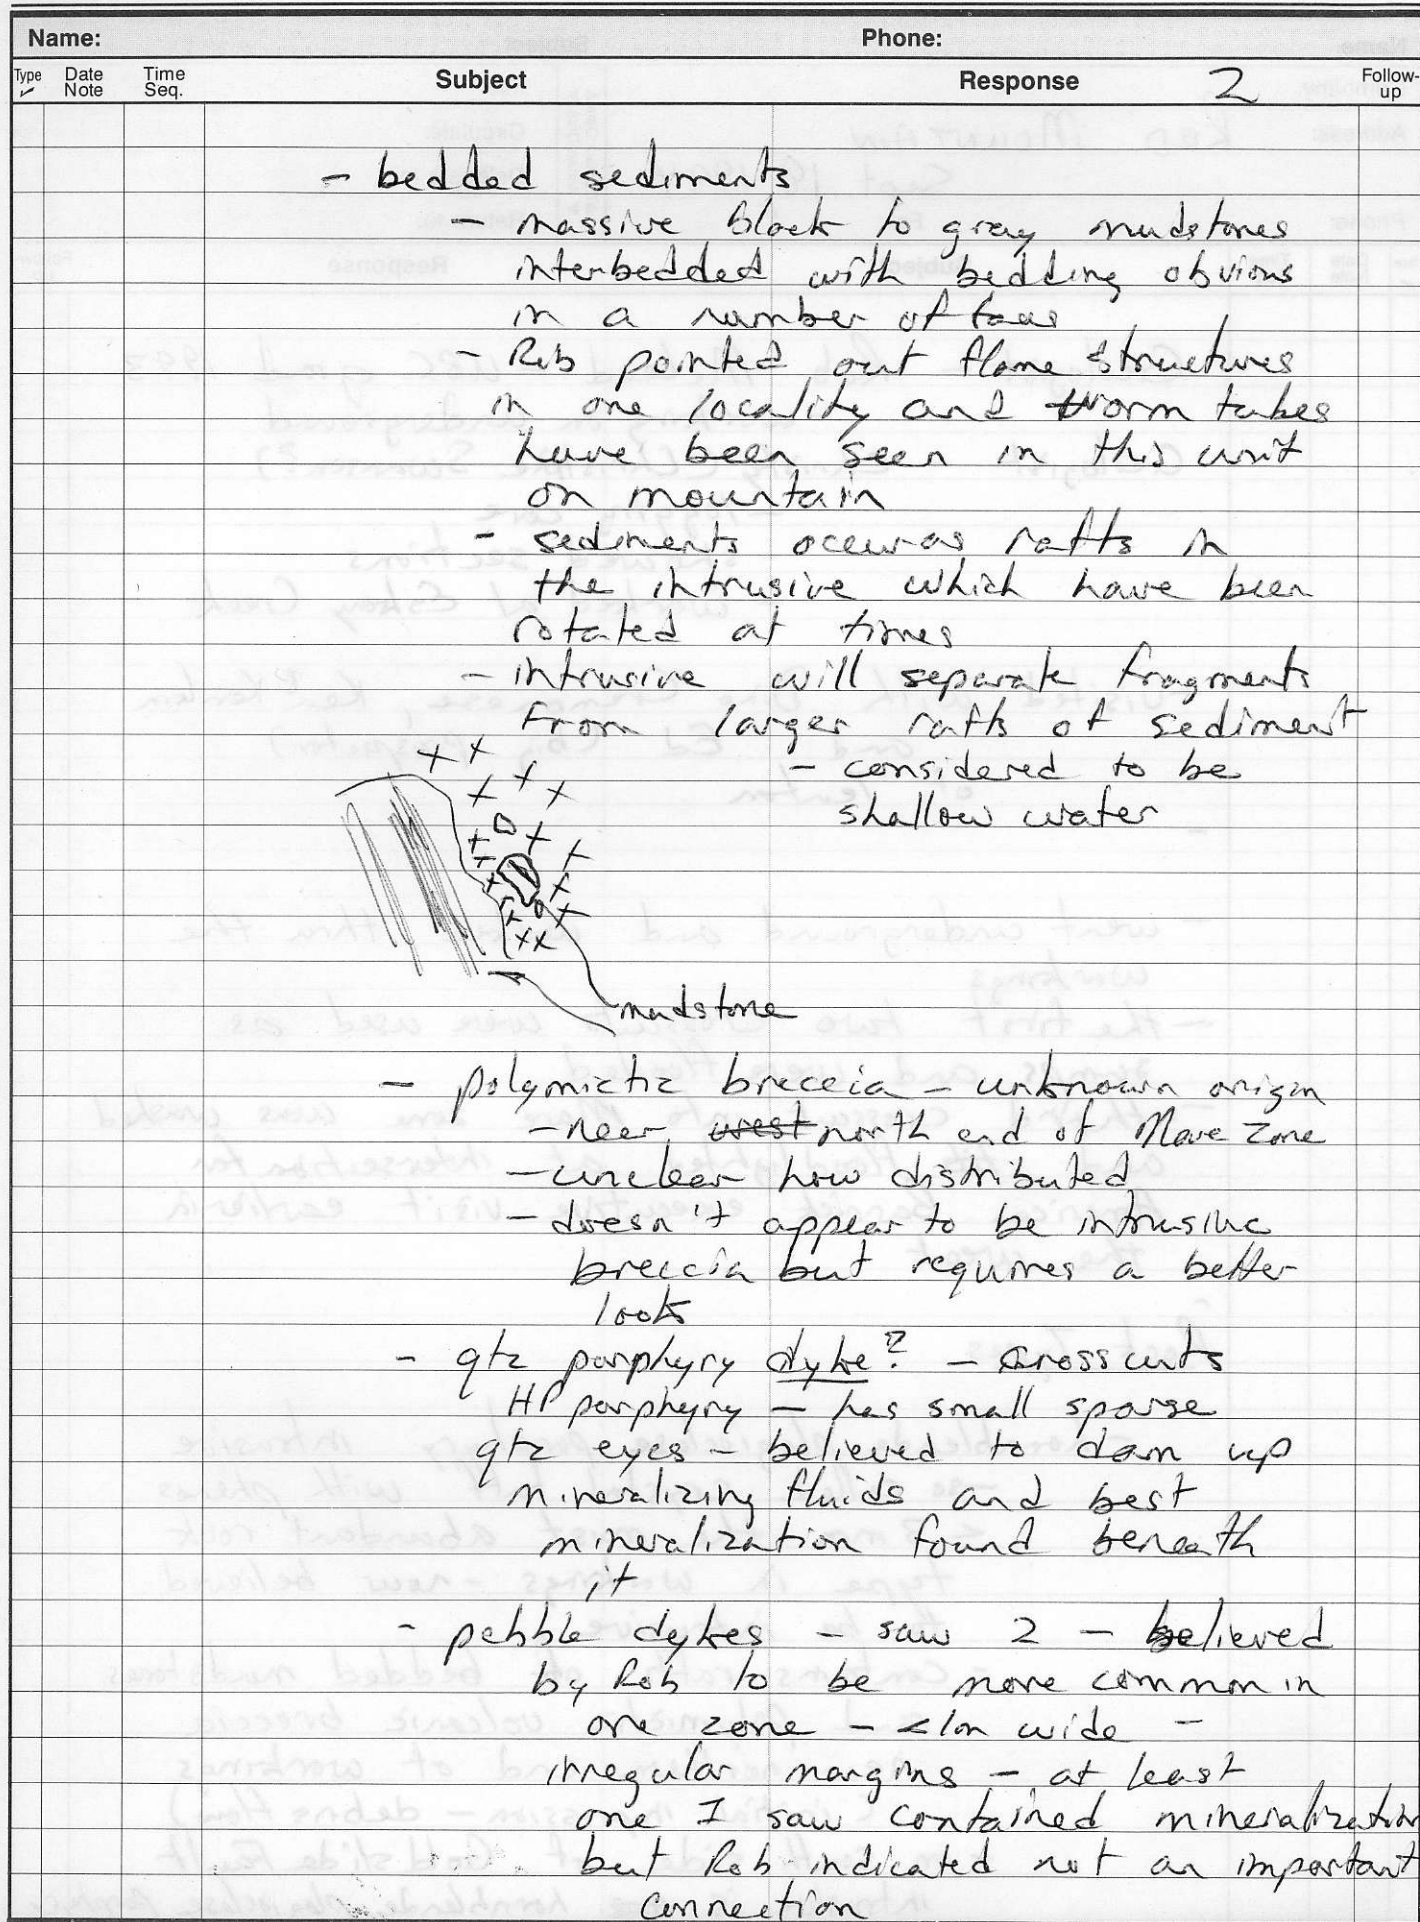 Name: Phone:
Type Date Note Time Seq. Subject Response 2 Follow-up
- bedded sediments
- massive black to gray mudstones
interbedded with bedding obvious
in a number of
- Rob pointed out flame structures
in one locality and worm tubes
have been seen in this unit
on mountain
- sediments occur as rafts in
the intrusive which have been
rotated at times
- intrusive will separate fragments
from larger rafts of sediment
- considered to be
shallow water
mudstone
- polymictic breccia - unknown origin
- near west north end of Marc Zone
- unclear how distributed
- doesn't appear to be intrusive
breccia but requires a better
look
- qtz porphyry dyke? - crosscuts
HP porphyry - has small sparse
qtz eyes - believed to dam up
mineralizing fluids and best
mineralization found beneath
it
- pebble dykes - saw 2 - believed
by Rob to be more common in
one zone - <1m wide -
irregular margins - at least
one I saw contained mineralization
but Rob indicated not an important
connection